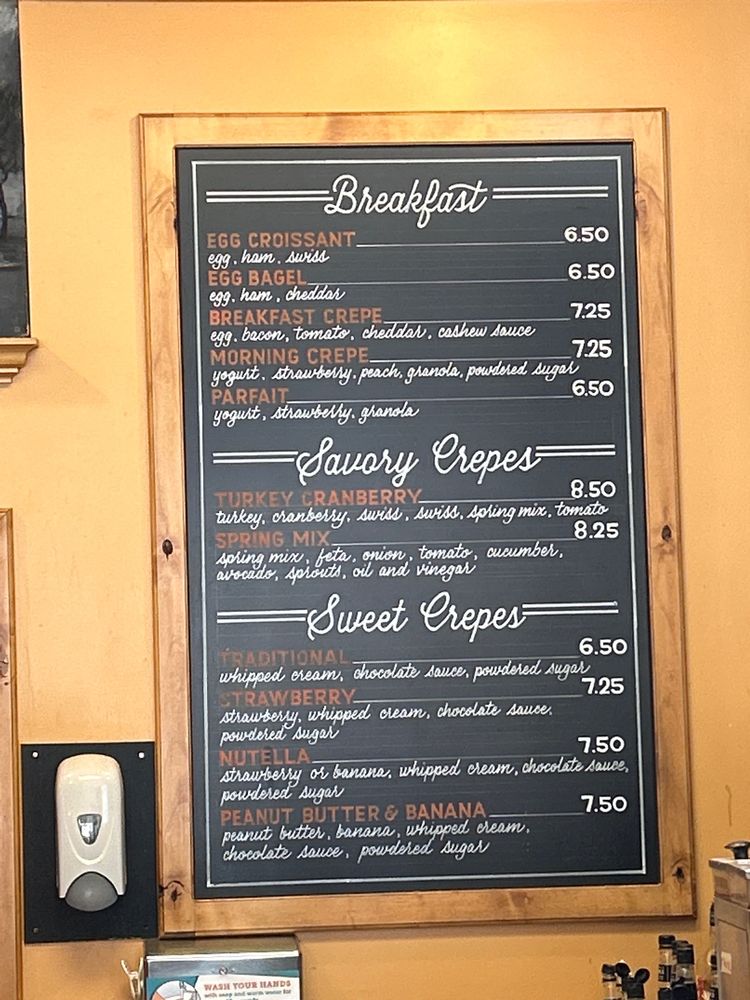 Breakfast
EGG CROISSANT 6.50
egg, ham, swiss
EGG BAGEL 6.50
egg, ham, cheddar
BREAKFAST CREPE 7.25
egg, bacon, tomato, cheddar, cashew sauce
MORNING CREPE 7.25
yogurt, strawberry, peach, granola, powdered sugar
PARFAIT 6.50
yogurt, strawberry, granola
Savory Crepes
TURKEY CRANBERRY 8.50
turkey, cranberry, swiss, swiss, spring mix, tomato
SPRING MIX 8.25
spring mix, feta, onion, tomato, cucumber,
avocado, sprouts, oil and vinegar
Sweet Crepes
TRADITIONAL 6.50
whipped cream, chocolate sauce, powdered sugar
STRAWBERRY 7.25
strawberry, whipped cream, chocolate sauce,
powdered sugar
NUTELLA 7.50
strawberry or banana, whipped cream, chocolate sauce,
powdered sugar
PEANUT BUTTER & BANANA 7.50
peanut butter, banana, whipped cream,
chocolate sauce, powdered sugar
WASH YOUR HANDS
with soap and warm water for